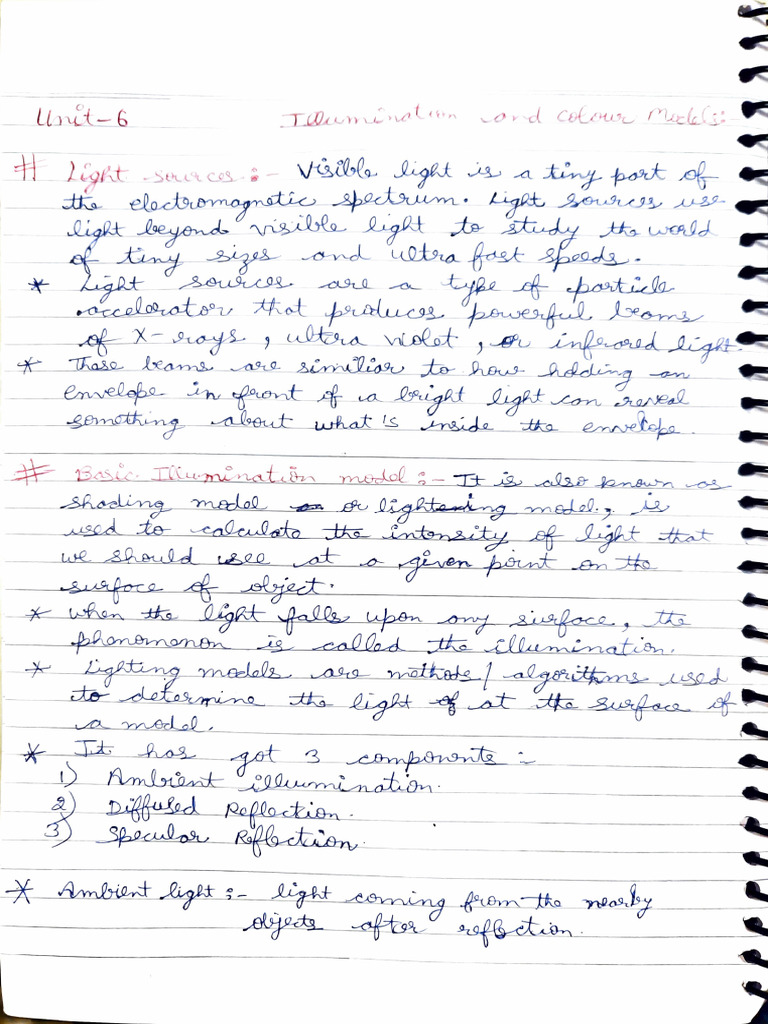 Unit-6 Illumination and Colour Models:-
# Light sources:- Visible light is a tiny part of
the electromagnetic spectrum. Light sources use
light beyond visible light to study the world
of tiny sizes and ultra fast speeds.
* Light sources are a type of particle
accelerator that produces powerful beams
of X-rays, ultra violet, or infrared light.
* These beams are similiar to how holding an
envelope in front of a bright light can reveal
something about what is inside the envelope.
# Basic Illumination model:- It is also known as
shading model or lightening model, is
used to calculate the intensity of light that
we should see at a given point on the
surface of object.
* When the light falls upon any surface, the
phenomenon is called the illumination.
* Lighting models are methods/algorithms used
to determine the light at the surface of
a model.
* It has got 3 components:-
1) Ambient illumination.
2) Diffused Reflection.
3) Specular Reflection.
* Ambient light:- light coming from the nearby
objects after reflection.